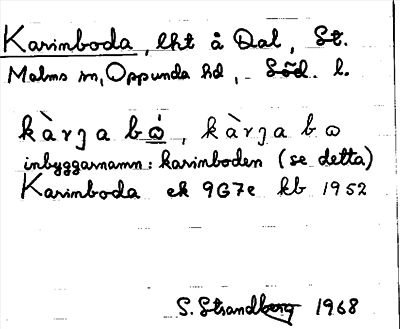 Karinboda, lht å Dal, St.
Malms sn, Oppunda hd, Söd. l.
kàrȷa bo̲, kàrȷa bo
inbyggarnamn: karinboden (se detta)
Karinboda ek 9G7e kb 1952
S. Strandberg 1968